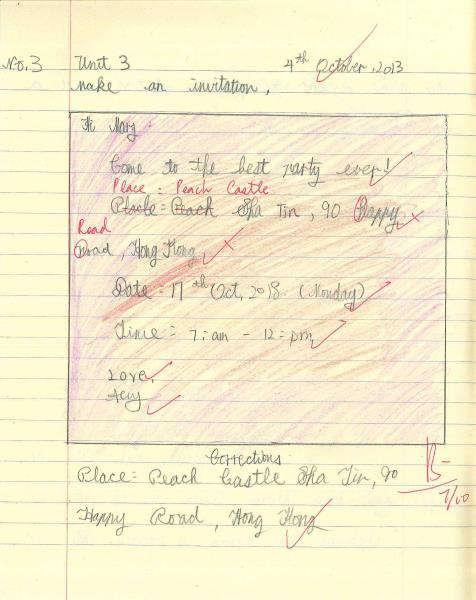 No.3 Unit 3 4th October, 2013
Make an invitation,
Hi Mary:
Come to the best party ever!
Place : Peach Castle
Place: Peach Sha Tin, 90 Happy
Road
Road, Hong Kong
Date = 17th Oct, 2013. (Monday)
Time = 7:am - 12=pm
Love,
Corrections
Place: Peach Castle Sha Tin, 90
B-
Happy Road, Hong Kong